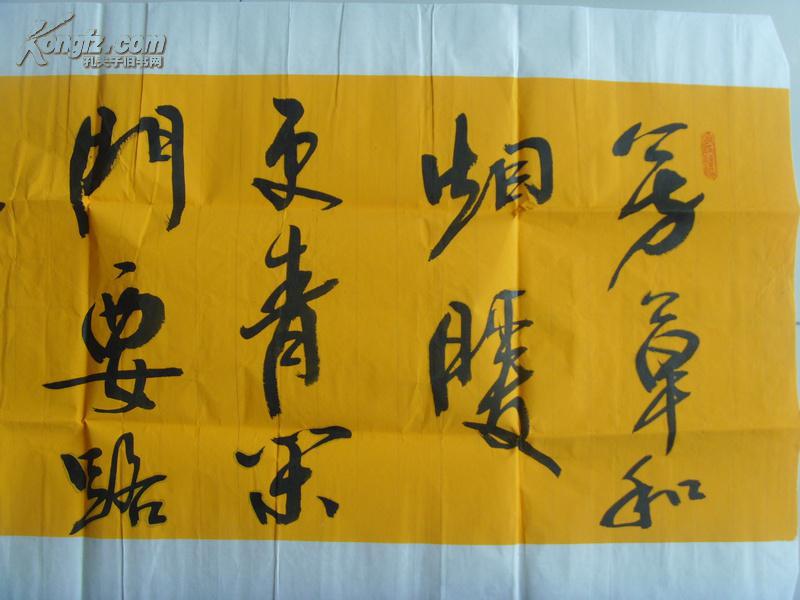 Kongfz.com
孔夫子旧书网
芳草和
烟暖
更青闲
門要路